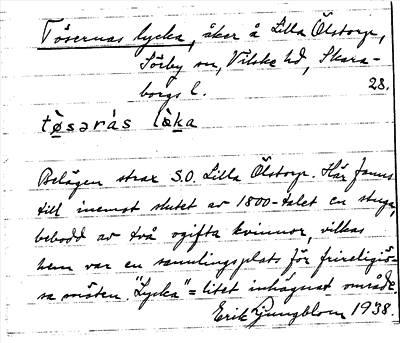 Tösernas lycka, åker å Lilla Ölstorp,
Sörby sn, Vilske hd, Skara-
borgs l. 28.
tø̀səra̍s lø̀ka
Belägen strax S.O. Lilla Ölstorp. Här fanns
till inemot slutet av 1800-talet en stuga,
bebodd av två ogifta kvinnor, vilkas
hem var en samlingsplats för frireligiö-
sa möten. "Lycka" = litet inhägnat område.
Erik Ljungblom 1938.